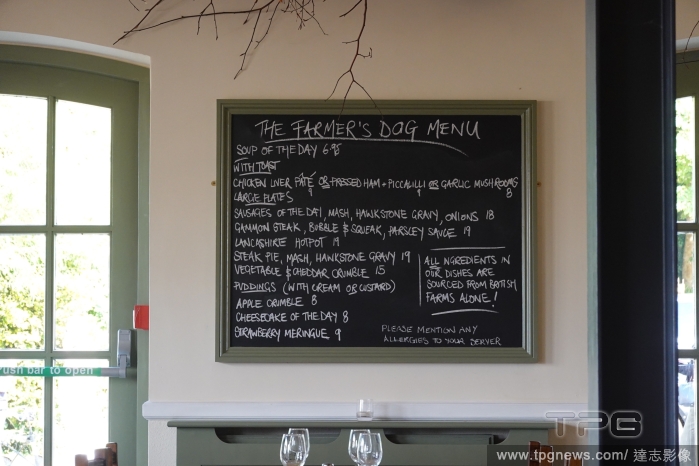 THE FARMER'S DOG MENU
SOUP OF THE DAY 6.95
WITH TOAST
CHICKEN LIVER PÂTÉ OR PRESSED HAM + PICCALILLI OR GARLIC MUSHROOMS
9 9 8
LARGE PLATES
SAUSAGES OF THE DAY, MASH, HAWKSTONE GRAVY, ONIONS 18
GAMMON STEAK, BUBBLE & SQUEAK, PARSLEY SAUCE 19
LANCASHIRE HOTPOT 19
STEAK PIE, MASH, HAWKSTONE GRAVY 19
VEGETABLE & CHEDDAR CRUMBLE 15
PUDDINGS (WITH CREAM OR CUSTARD)
APPLE CRUMBLE 8
CHEESECAKE OF THE DAY 8
STRAWBERRY MERINGUE 9
ALL INGREDIENTS IN
OUR DISHES ARE
SOURCED FROM BRITISH
FARMS ALONE!
PLEASE MENTION ANY
ALLERGIES TO YOUR SERVER
Push bar to open
TPG
www.tpgnews.com/ 達志影像